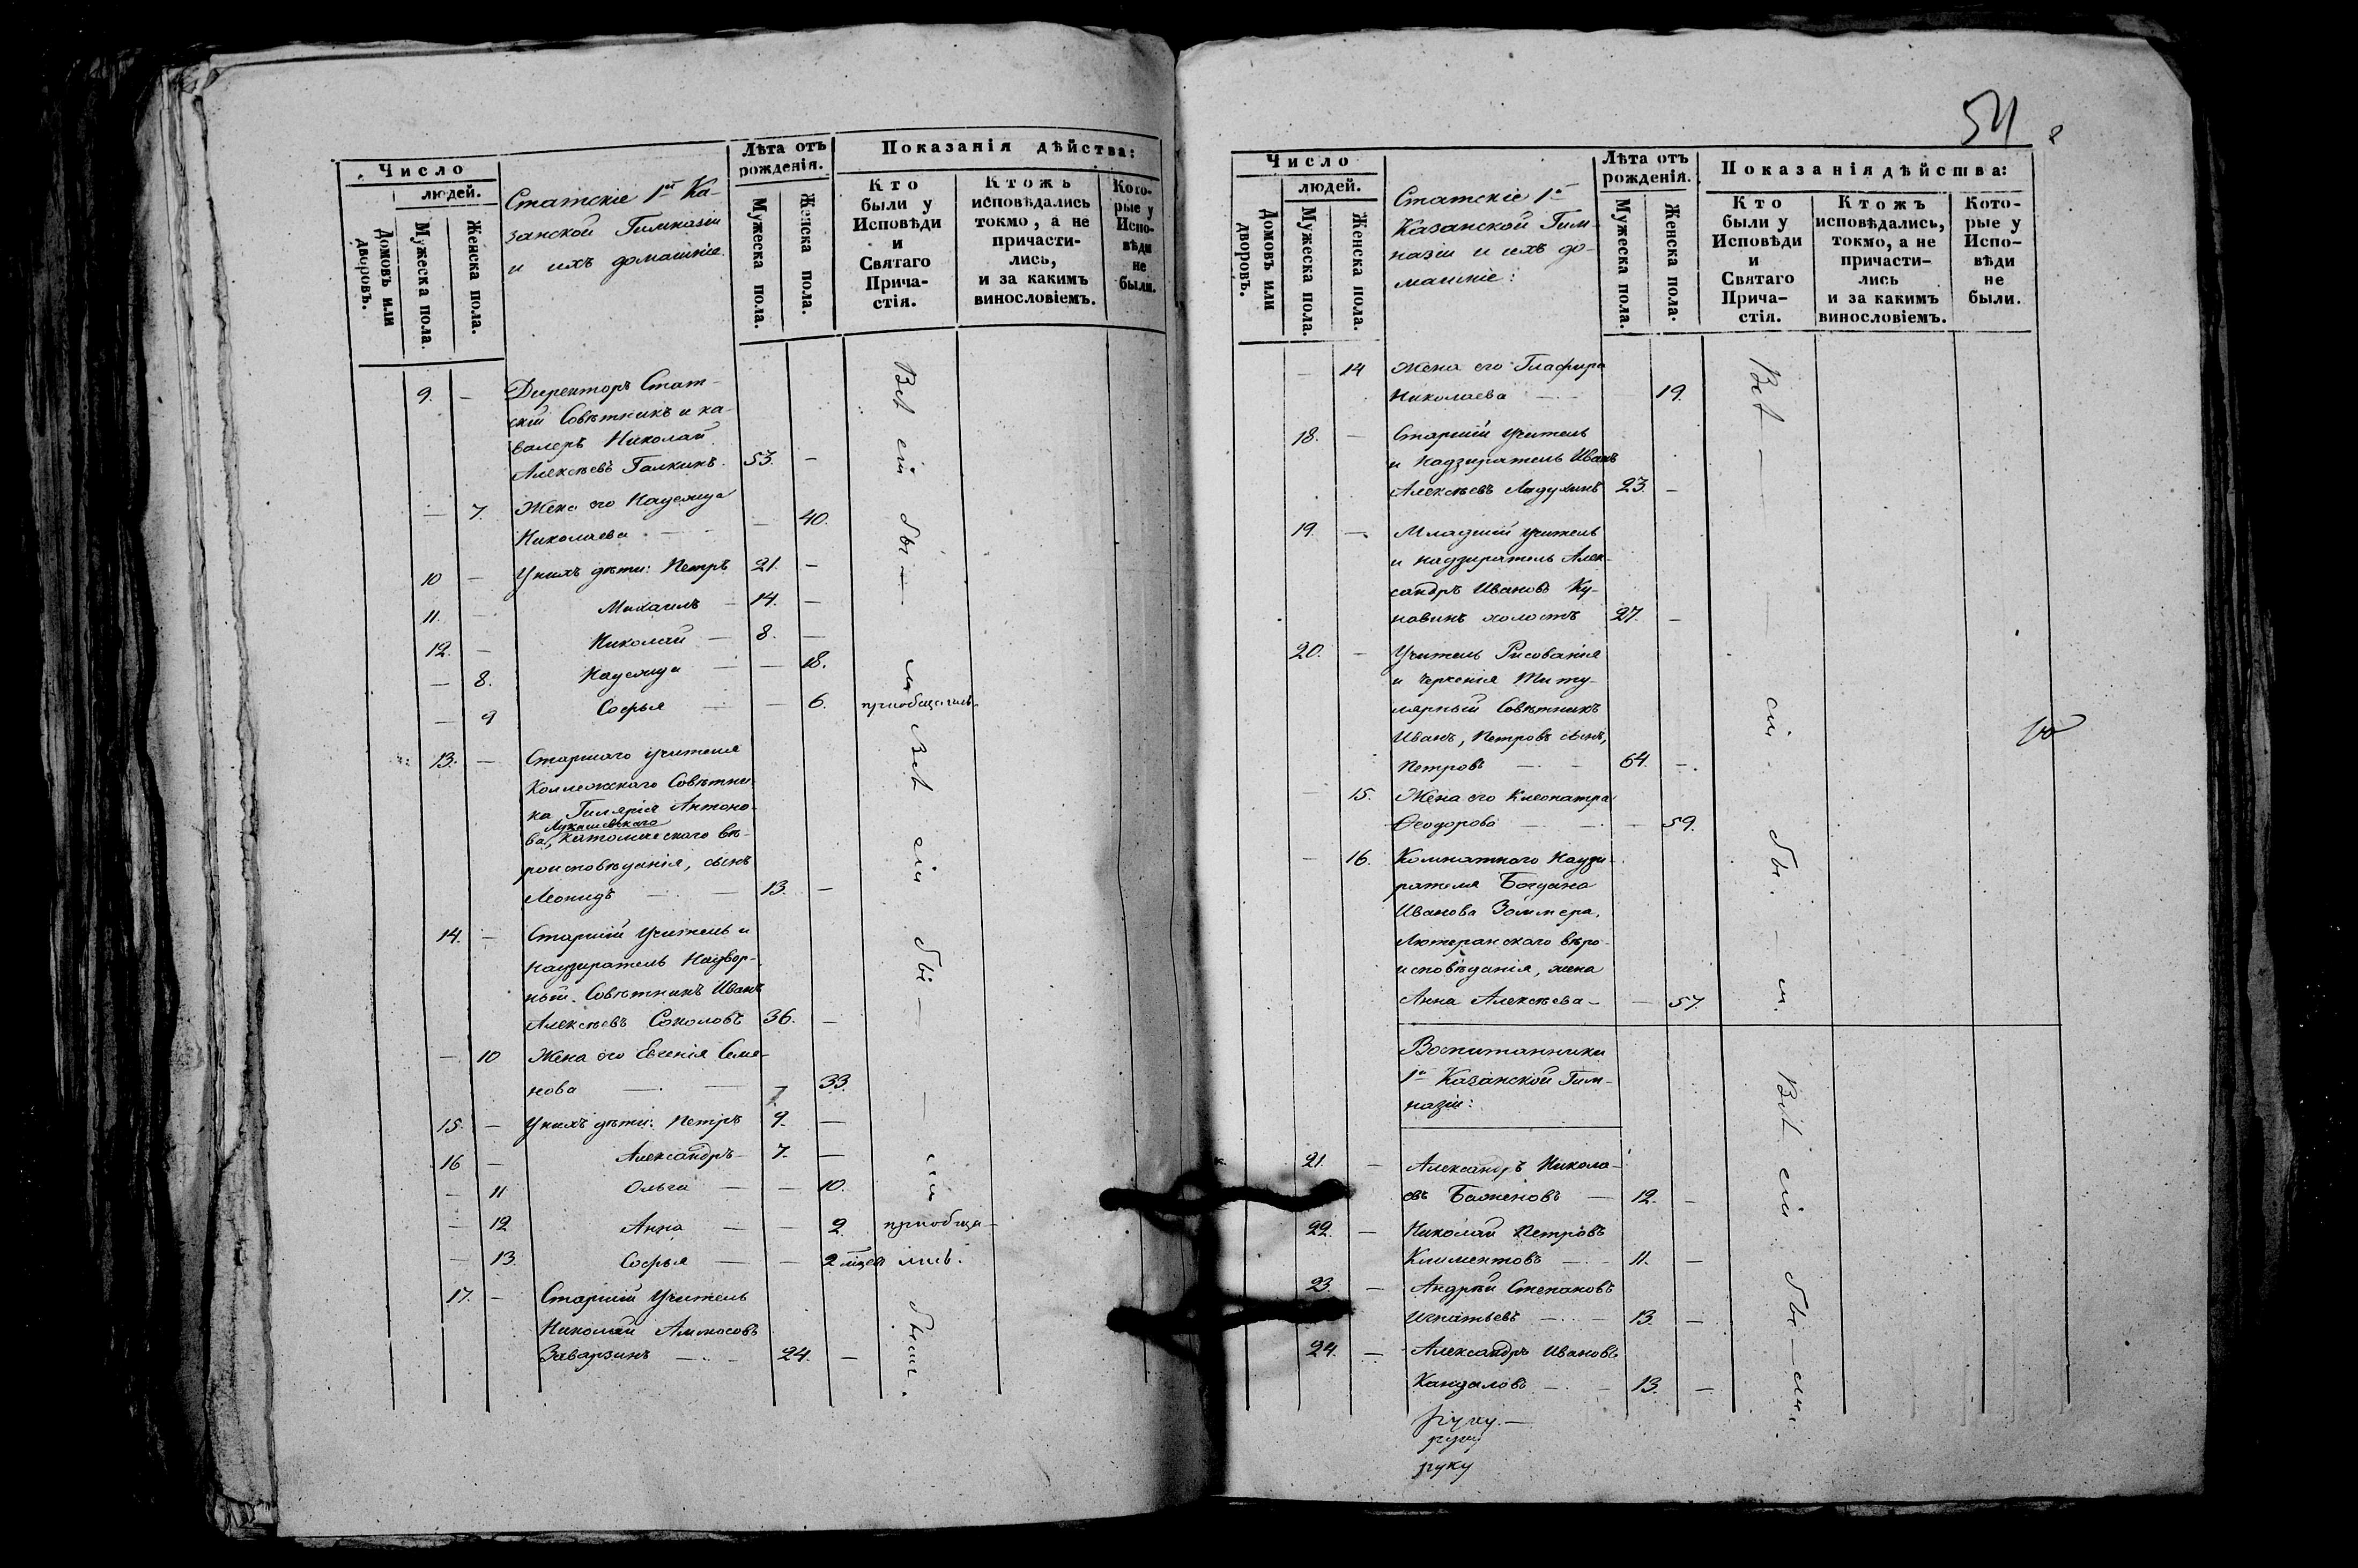 Число
людей.
Домовъ или дворовъ.
Мужеска пола.
Женска пола.
Статскіе 1й Ка-
занской Гимназіи
и ихъ домашніе.
Лѣта отъ
рожденія.
Мужеска пола.
Женска пола.
Показанія дѣйства:
Кто
были у
Исповѣди
и
Святаго
Прича-
стія.
Ктожъ
исповѣдались
токмо, а не
причасти-
лись,
и за какимъ
винословіемъ.
Кото-
рые у
Испо-
вѣди
не
были.
9. — Директоръ Стат-
скій Совѣтникъ и ка-
валеръ Николай
Алексѣевъ Галкинъ. 53. —
— 7. Жена его Надежда
Николаева — — 40.
10 — У нихъ дѣти: Петръ 21. —
11. — Михаилъ — 14. —
12. — Николай — 8. —
— 8. Надежда — — 18.
— 9 Софья — — 6. приобщались.
13. — Старшаго учителя
Коллежскаго Совѣтни-
ка Гилярія Антоно-
Лукашевскаго
ва, Католическаго вѣ-
роисповѣданія, сынъ
Леонидъ — — 13. —
14. — Старшій Учитель и
Надзиратель Надвор-
ный Совѣтникъ Иванъ
Алексѣевъ Соколовъ 36. —
— 10 Жена его Евгенія Семе-
нова — — — 33.
15. — У нихъ дѣти: Петръ 9. —
16 — Александръ — 7. —
— 11 Ольга — — 10.
— 12 Анна — — 2. приобща-
— 13. Софья — — 2 лись.
17. — Старшій Учитель
Николай Аммосовъ
Заварзинъ — 24. —
Всѣ сіи бы — ли
Всѣ сіи бы —
— сіи были.
54
Число
людей.
Домовъ или дворовъ.
Мужеска пола.
Женска пола.
Статскіе 1й
Казанской Гим-
назіи и ихъ до-
машніе:
Лѣта отъ
рожденія.
Мужеска пола.
Женска пола.
Показанія дѣйства:
Кто
были у
Исповѣди
и
Святаго
Прича-
стія.
Ктожъ
исповѣдались,
токмо, а не
причасти-
лись
и за какимъ
винословіемъ.
Кото-
рые у
Испо-
вѣди
не
были.
— 14 Жена его Глафира
Николаева — — 19.
18. — Старшій Учитель
и Надзиратель Иванъ
Алексѣевъ Ладухинъ 23. —
19. — Младшій учитель
и надзиратель Алек-
сандръ Ивановъ Ку-
новинъ холостъ 27. —
20. — Учитель Рисованія
и Черченія Титу-
лярный Совѣтникъ
Иванъ, Петровъ сынъ,
Петровъ — — 64. —
— 15. Жена его Клеопатра
Ѳеодорова — — — 59.
— 16. Комнатнаго Надзи-
рателя Богдана
Иванова Зоммера,
Лютеранскаго вѣро-
исповѣданія, жена
Анна Алексѣева — — 57.
Воспитанники
1й Казанской Гим-
назіи:
21. — Александръ Никола-
евъ Баженовъ — 12. —
22. — Николай Петровъ
Климентовъ — 11. —
23. — Андрѣй Степановъ
Игнатьевъ — 13. —
24. — Александръ Ивановъ
Кандаловъ — 13. —
Всѣ — сіи бы — ли.
Всѣ сіи бы — ли.
руку